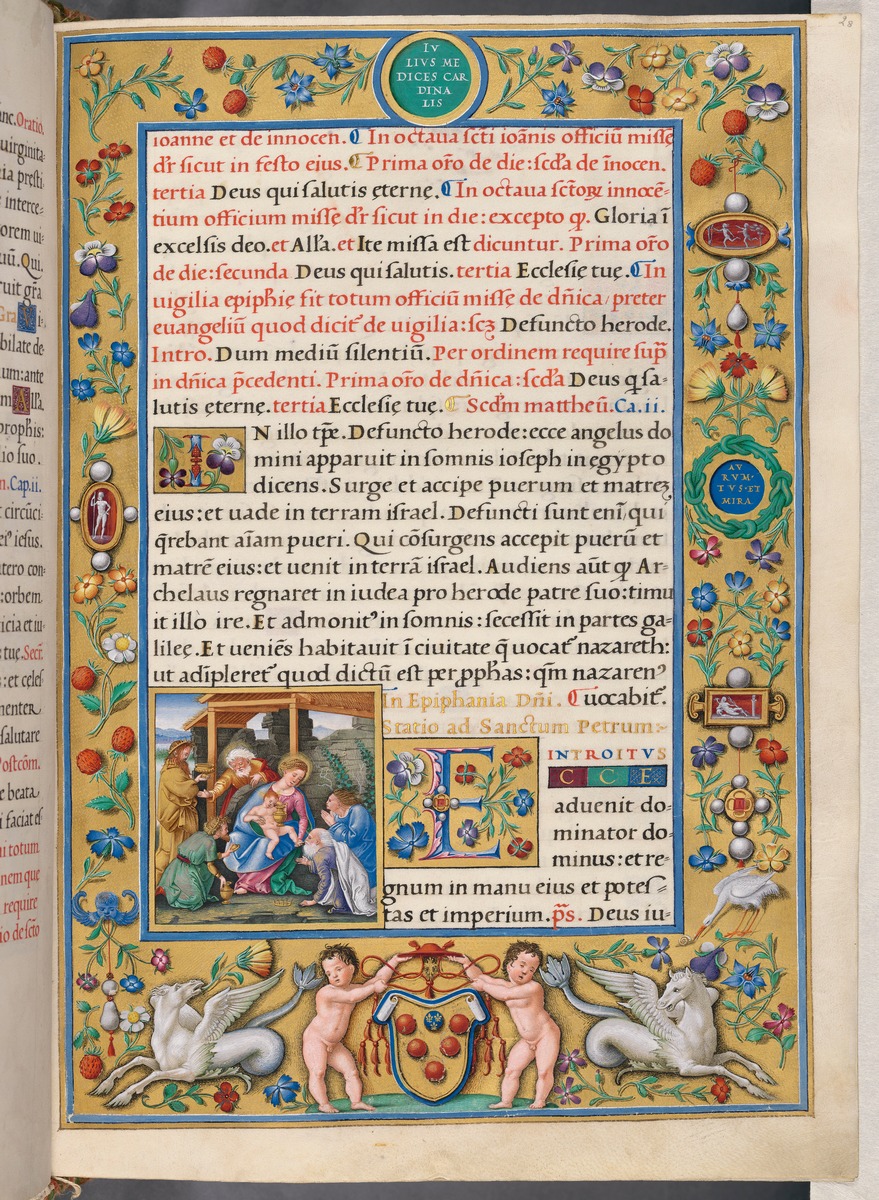 28
IV
LIVS ME
DICES CAR
DINA
LIS
ioanne et de innocen. ¶ In octaua sc̄ti ioānis officiū misse
dr̄ sicut in festo eius. ¶ Prima or̄o de die: sc̄da de īnocen.
tertia Deus qui salutis ęterne. ¶ In octaua sc̄toꝝ innocē-
tium officium missę dr̄ sicut in die: excepto ꝙ. Gloria ī
excelsis deo. et All̄a. et Ite missa est dicuntur. Prima or̄o
de die: secunda Deus qui salutis. tertia Ecclesię tuę. ¶ In
uigilia epiphię fit totum officiū missę de dn̄ica / preter
euangeliū quod dicit̉ de uigilia: scꝫ Defuncto herode.
Intro. Dum mediū silentiū. Per ordinem require sup̄
in dn̄ica p̄cedenti. Prima or̄o de dn̄ica: sc̄da Deus q̄ sa-
lutis ęterne. tertia Ecclesię tuę. ¶ Scd̄m mattheū. Ca. ii.
IN illo tp̄e. Defuncto herode: ecce angelus do
mini apparuit in somnis ioseph in egypto
dicens. Surge et accipe puerum et matreꝫ
eius: et uade in terram israel. Defuncti sunt enī / qui
q̄rebant aīam pueri. Qui cōsurgens accepit puerū et
matrē eius: et uenit in terrā israel. Audiens aūt ꝙ Ar-
chelaus regnaret in iudea pro herode patre suo: timu
it illò ire. Et admonitꝰ in somnis: secessit in partes ga-
lileę. Et ueniēs habitauit ī ciuitate q̄ uocat̉ nazareth:
ut adīpleret̉ quod dictū est per ꝓphas: qm̄ nazarenꝰ
In Epiphania Dn̄i. ¶ uocabit̉.
Statio ad Sanctum Petrum:-
INTROITVS
E CCE
aduenit do-
minator do-
minus: et re-
gnum in manu eius et potes-
tas et imperium. p̄s. Deus iu-
AV
RVM·
TVS·ET
MIRA
nc. Oratio.
uirginita
ia presti
s interce-
orem ui-
iū. Qui.
ruit gr̄a
Gra
bilate de
um: ante
All̄a.
prophis:
lio suo.
n. Cap. ii.
t circūci-
eiꝰ iesus.
tero con-
: orbem
icia et iu-
ę tuę. Secr̄.
s: et celes
menter
salutare
Postcōm.
e beata
i faciat es
ni totum
nem que
require
io de sc̄to